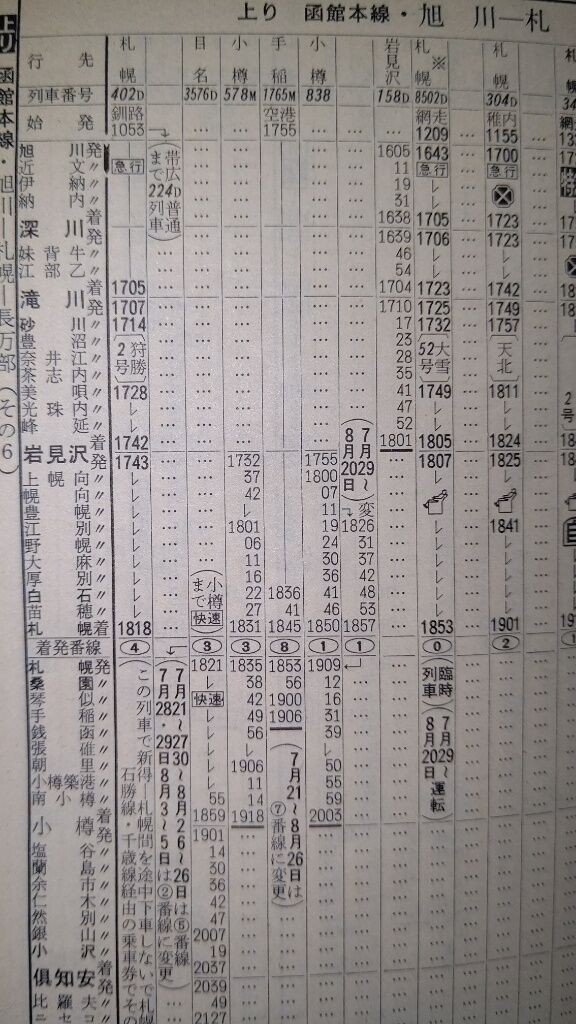 上り 函館本線・旭 川―札
上り 函館本線・旭川―札幌―長万部(その6)
行 先 札幌 目名 小樽 手稲 小樽 岩見沢 札幌 ※ 札幌
列車番号 402D 3576D 578M 1765M 838 158D 8502D 304D
始 発 釧路 1053 … … 空港 1755 … … 網走 1209 稚内 1155
旭 川発 1605 1643 1700
近 文〃 急行 11 急行 急行
伊 納〃 19 レ レ
納 内〃 31 レ
深 川着 1638 1705 1723
発 1639 1706 1723
妹 背 牛〃 46 レ レ
江 部 乙〃 54 レ レ
滝 川着 1705 1704 1723 1742
発 1707 1710 1725 1749
砂 川〃 1714 17 1732 1757
豊 沼〃 23
奈 井 江〃 28
茶 志 内〃 35
狩勝2号
大雪52号
天北
美 唄〃 1728 41 1749 1811
光 珠 内〃 レ 47 レ レ
峰 延〃 レ 52 レ レ
岩見沢着 1742 1801 1805 1824
発 1743 1732 1755 1807 1825
上 幌 向〃 レ 37 1800 レ レ
幌 向〃 レ 42 07
豊 幌〃 レ レ 11 変
江 別〃 レ 1801 19 1826 レ 1841
野 幌〃 レ 06 24 31 レ レ
大 麻〃 レ 11 30 37 レ レ
厚 別〃 レ 16 36 42 レ レ
白 石〃 レ 22 1836 41 48 レ レ
苗 穂〃 レ 27 41 46 53 レ レ
札 幌着 1818 1831 1845 1850 1857 1853 1901
着発番線 ④ ③ ③ ⑧ ① ① ⓪ ②
札 幌発 1821 1835 1853 1909
桑 園〃 レ 38 56 12
琴 似〃 快速 42 1900 16
手 稲〃 レ 49 1906 31
銭 函〃 レ 56 39
張 碓〃 レ レ レ
朝 里〃 レ 1906 50
小樽築港〃 レ 11 55
南 小 樽〃 55 14 59
小 樽着 1859 1918 2003
発 1901
塩 谷〃 14
蘭 島〃 30
余 市〃 36
仁 木〃 42
然 別〃 47
銀 山〃 2007
小 沢〃 19
倶知安着 2037
発 2039
比 羅 夫〃 49
ニセコ〃 2127
帯広まで224D普通列車
小樽まで快速
7月20~8月29日
臨時列車
7月20~8月29日運転
7月21~8月26日は⑦番線に変更
7月21~30日・8月6~26日は⑤番線
7月28・29日~8月3~5日は②番線に変更
この列車で新得―札幌間を途中下車しないで
石勝線・千歳線経由の乗車券で